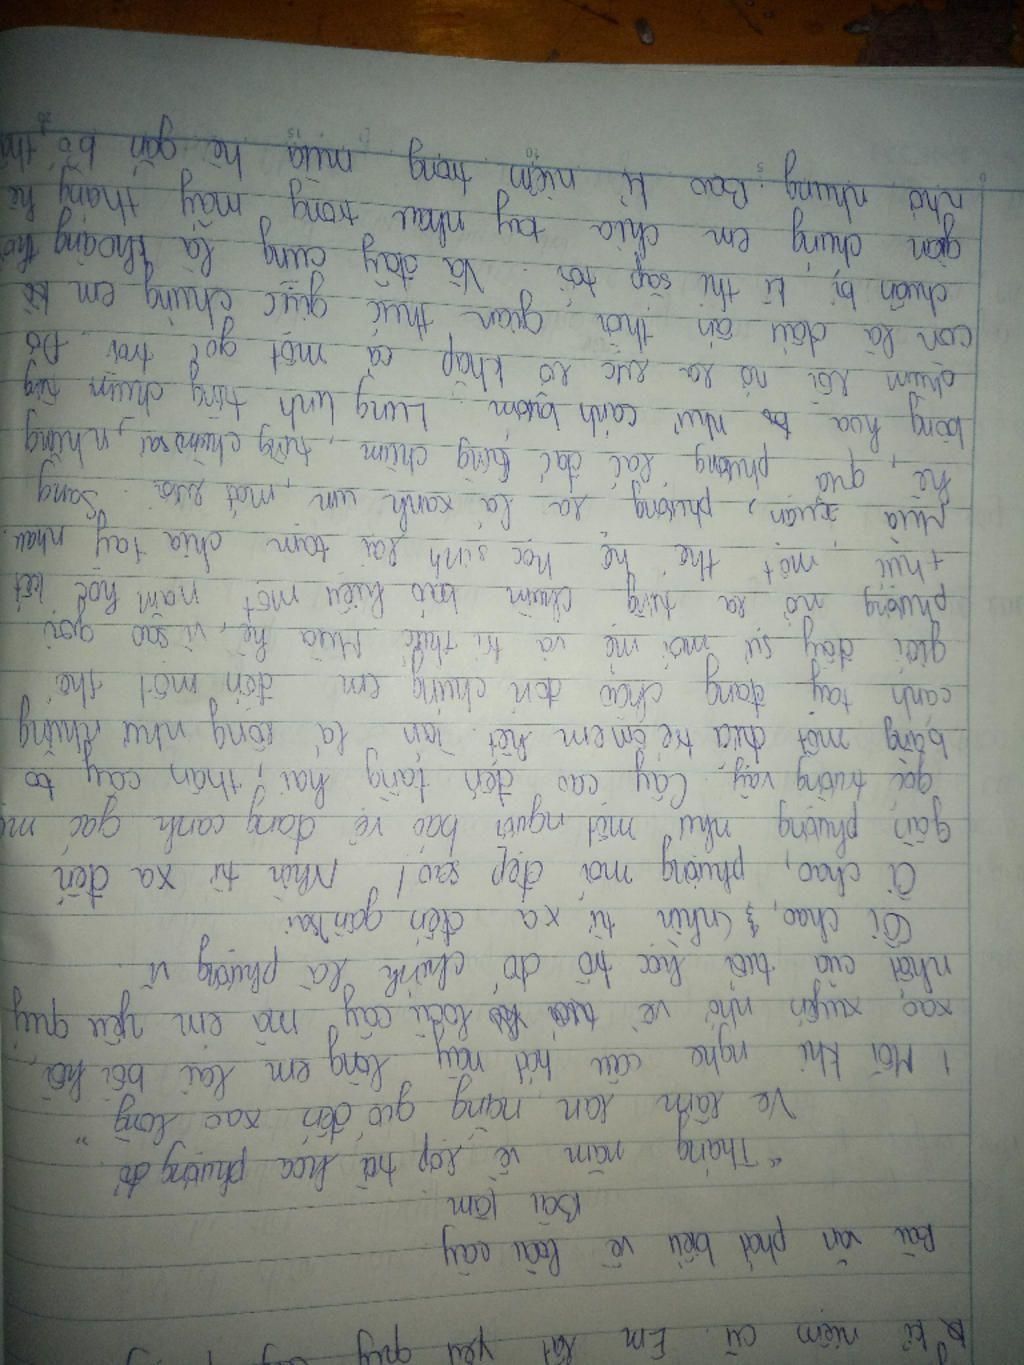 kỉ niệm cũ. Em rất yêu quý
Bài văn phát biểu về loài cây
Bài làm
"Tháng năm về lớp trẻ hoa phượng đỏ
Ve râm ran nắng gió đến xao lòng"
1 Mỗi khi nghe câu hát này lòng em lại bồi hồi,
xao xuyến nhớ về loài cây mà em yêu quý
nhất của tuổi học trò đó chính là phượng vĩ.
Ôi chao, nhìn từ xa đến gần
Ôi chao, phượng mới đẹp sao! Nhìn từ xa đến
gần phượng như một người bảo vệ đang canh gác
góc trường vậy. Cây cao đến tầng hai, thân cây to
bằng một đứa trẻ ôm em hết. Tán lá rộng như những
cánh tay đang chào đón chúng em đến một thế
giới đầy sự mới mẻ và tri thức. Mùa hè, vì sao gọi
phượng nở ra từng chùm báo hiệu một năm học kết
thúc, một thế hệ học sinh lại tạm chia tay nhau.
Mùa xuân, phượng ra lá xanh um, mát rượi. Sang
hè, quả phượng lác đác từng chùm, từng chùm sai, những
bông hoa như cánh bướm. Lung linh từng chùm từng
chùm rồi nó ra rực rỡ khắp cả một góc trời. Đó
còn là dấu ấn thời gian thúc giục chúng em
chuẩn bị kì thi sắp tới. Và đây cũng là khoảng thời
gian chúng em chia tay nhau trong mấy tháng hè
nhớ nhung bao kỉ niệm trong mùa hè gắn bó,